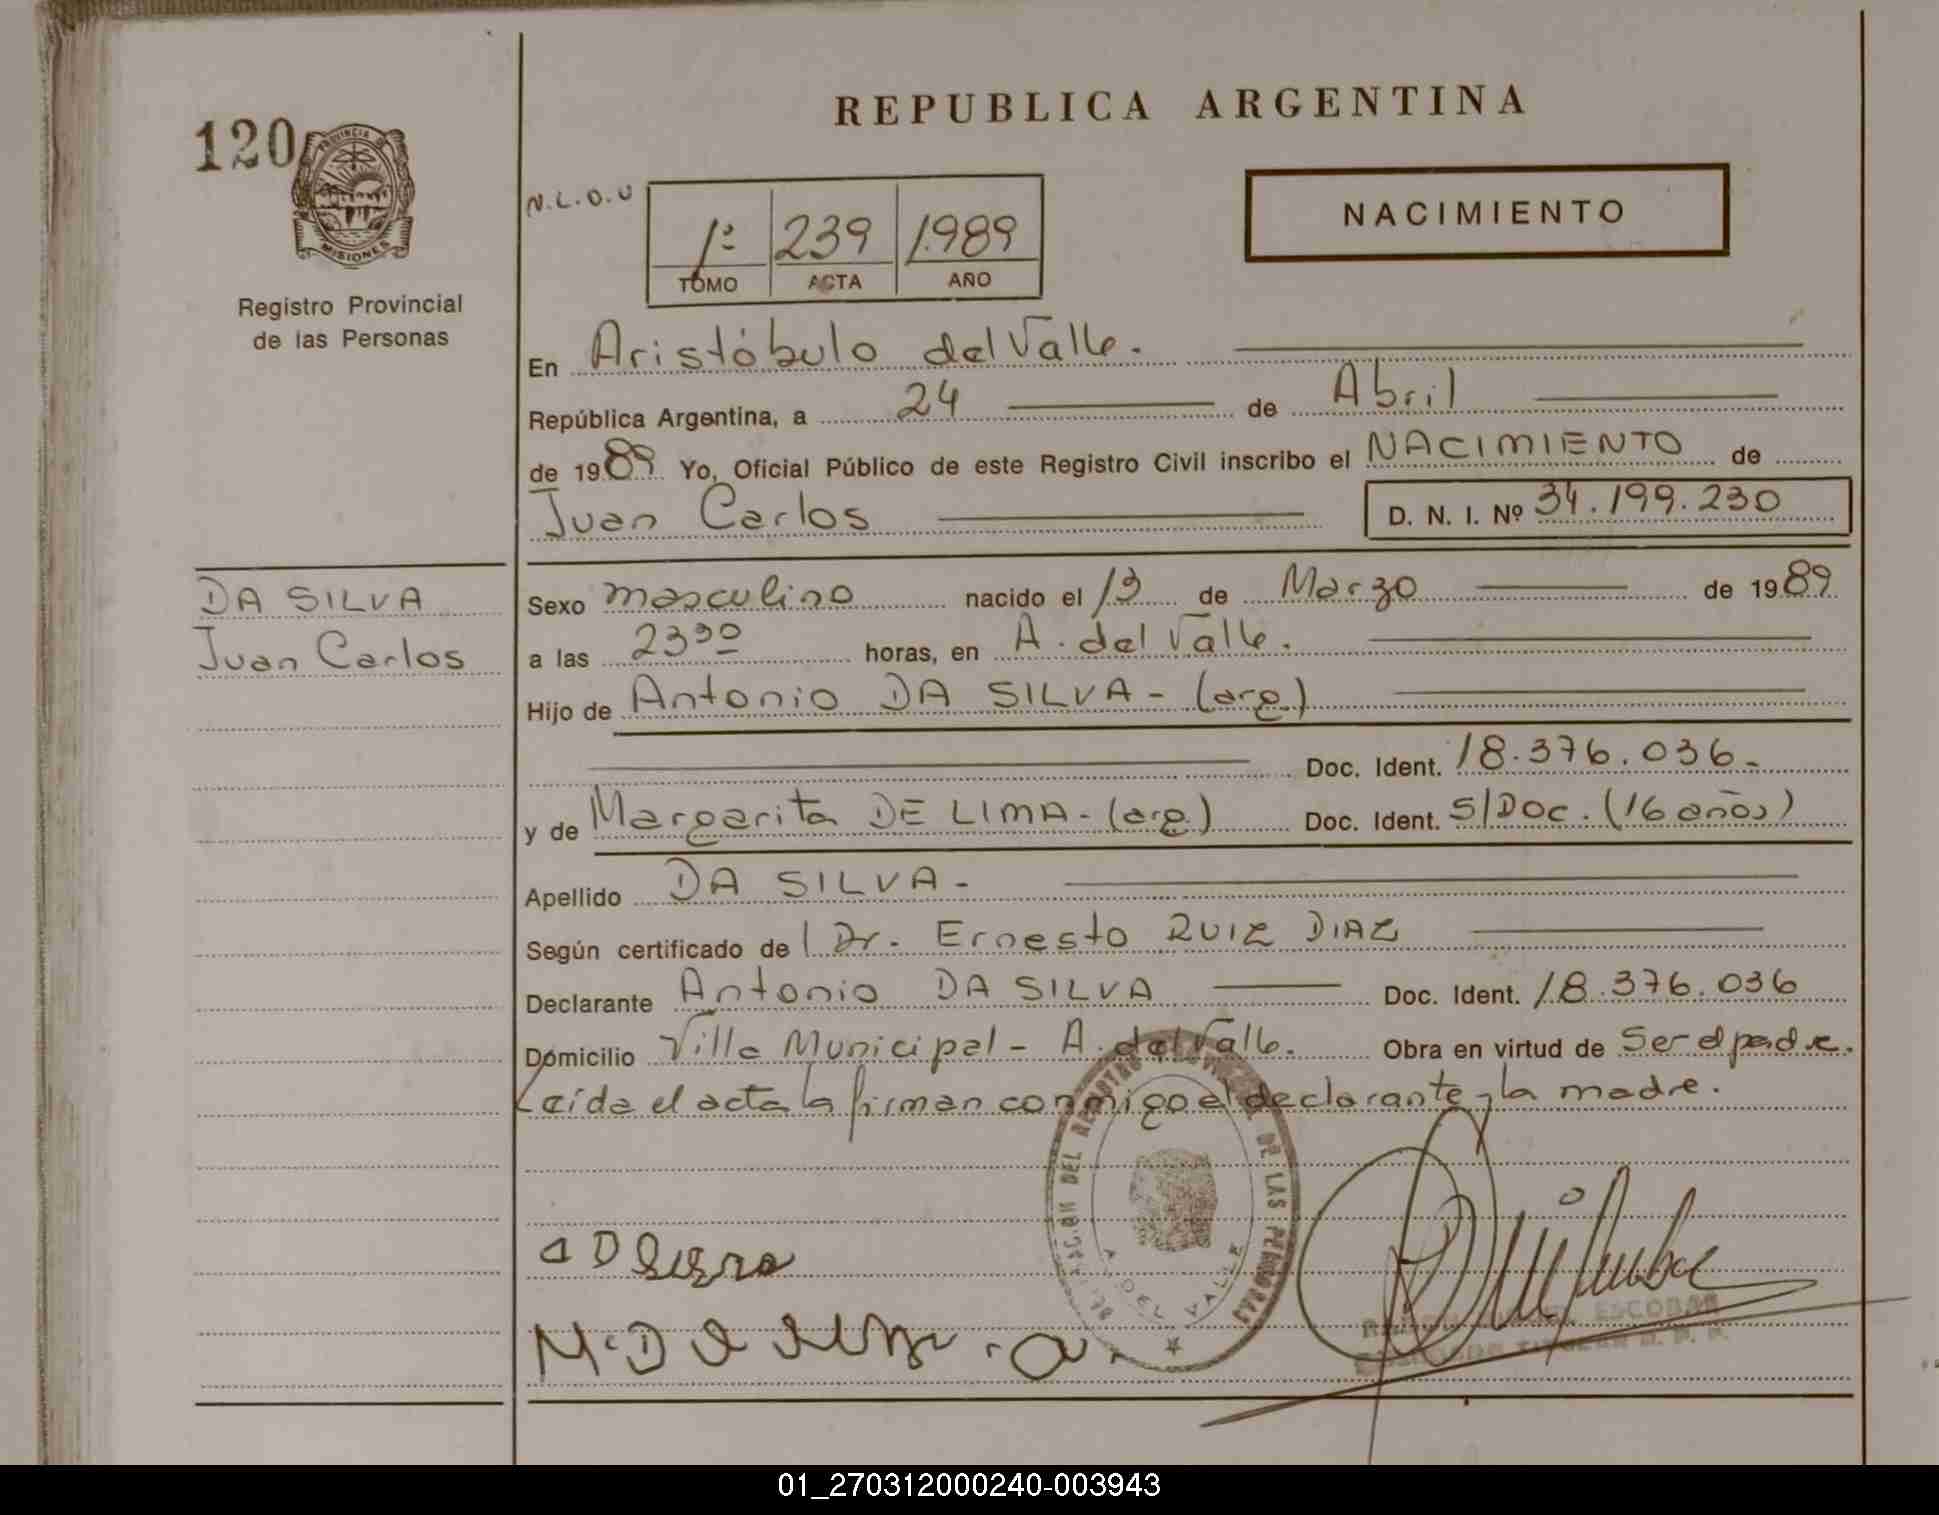 REPUBLICA ARGENTINA
120
PROVINCIA DE
MISIONES
Registro Provincial
de las Personas
N.L.O.U
1º 239 1.989
TOMO ACTA AÑO
NACIMIENTO
En Aristóbulo del Valle.
República Argentina, a 24 de Abril
de 1989 Yo, Oficial Público de este Registro Civil inscribo el NACIMIENTO de
Juan Carlos D. N. I. Nº 34.199.230
DA SILVA
Juan Carlos
Sexo masculino nacido el 13 de Marzo de 1989
a las 23³⁰ horas, en A. del Valle.
Hijo de Antonio DA SILVA - (arg.)
Doc. Ident. 18.376.036.-
y de Margarita DE LIMA - (arg.) Doc. Ident. S/DOC. (16 años)
Apellido DA SILVA -
Según certificado de Dr. Ernesto RUIZ DIAZ
Declarante Antonio DA SILVA Doc. Ident. 18.376.036
Domicilio Villa Municipal - A. del Valle. Obra en virtud de Ser el padre.
Leída el acta la firman conmigo el declarante y la madre.
DEL REGISTRO DE LAS PERSONAS
A. DEL VALLE
ESCOBAR
01_270312000240-003943